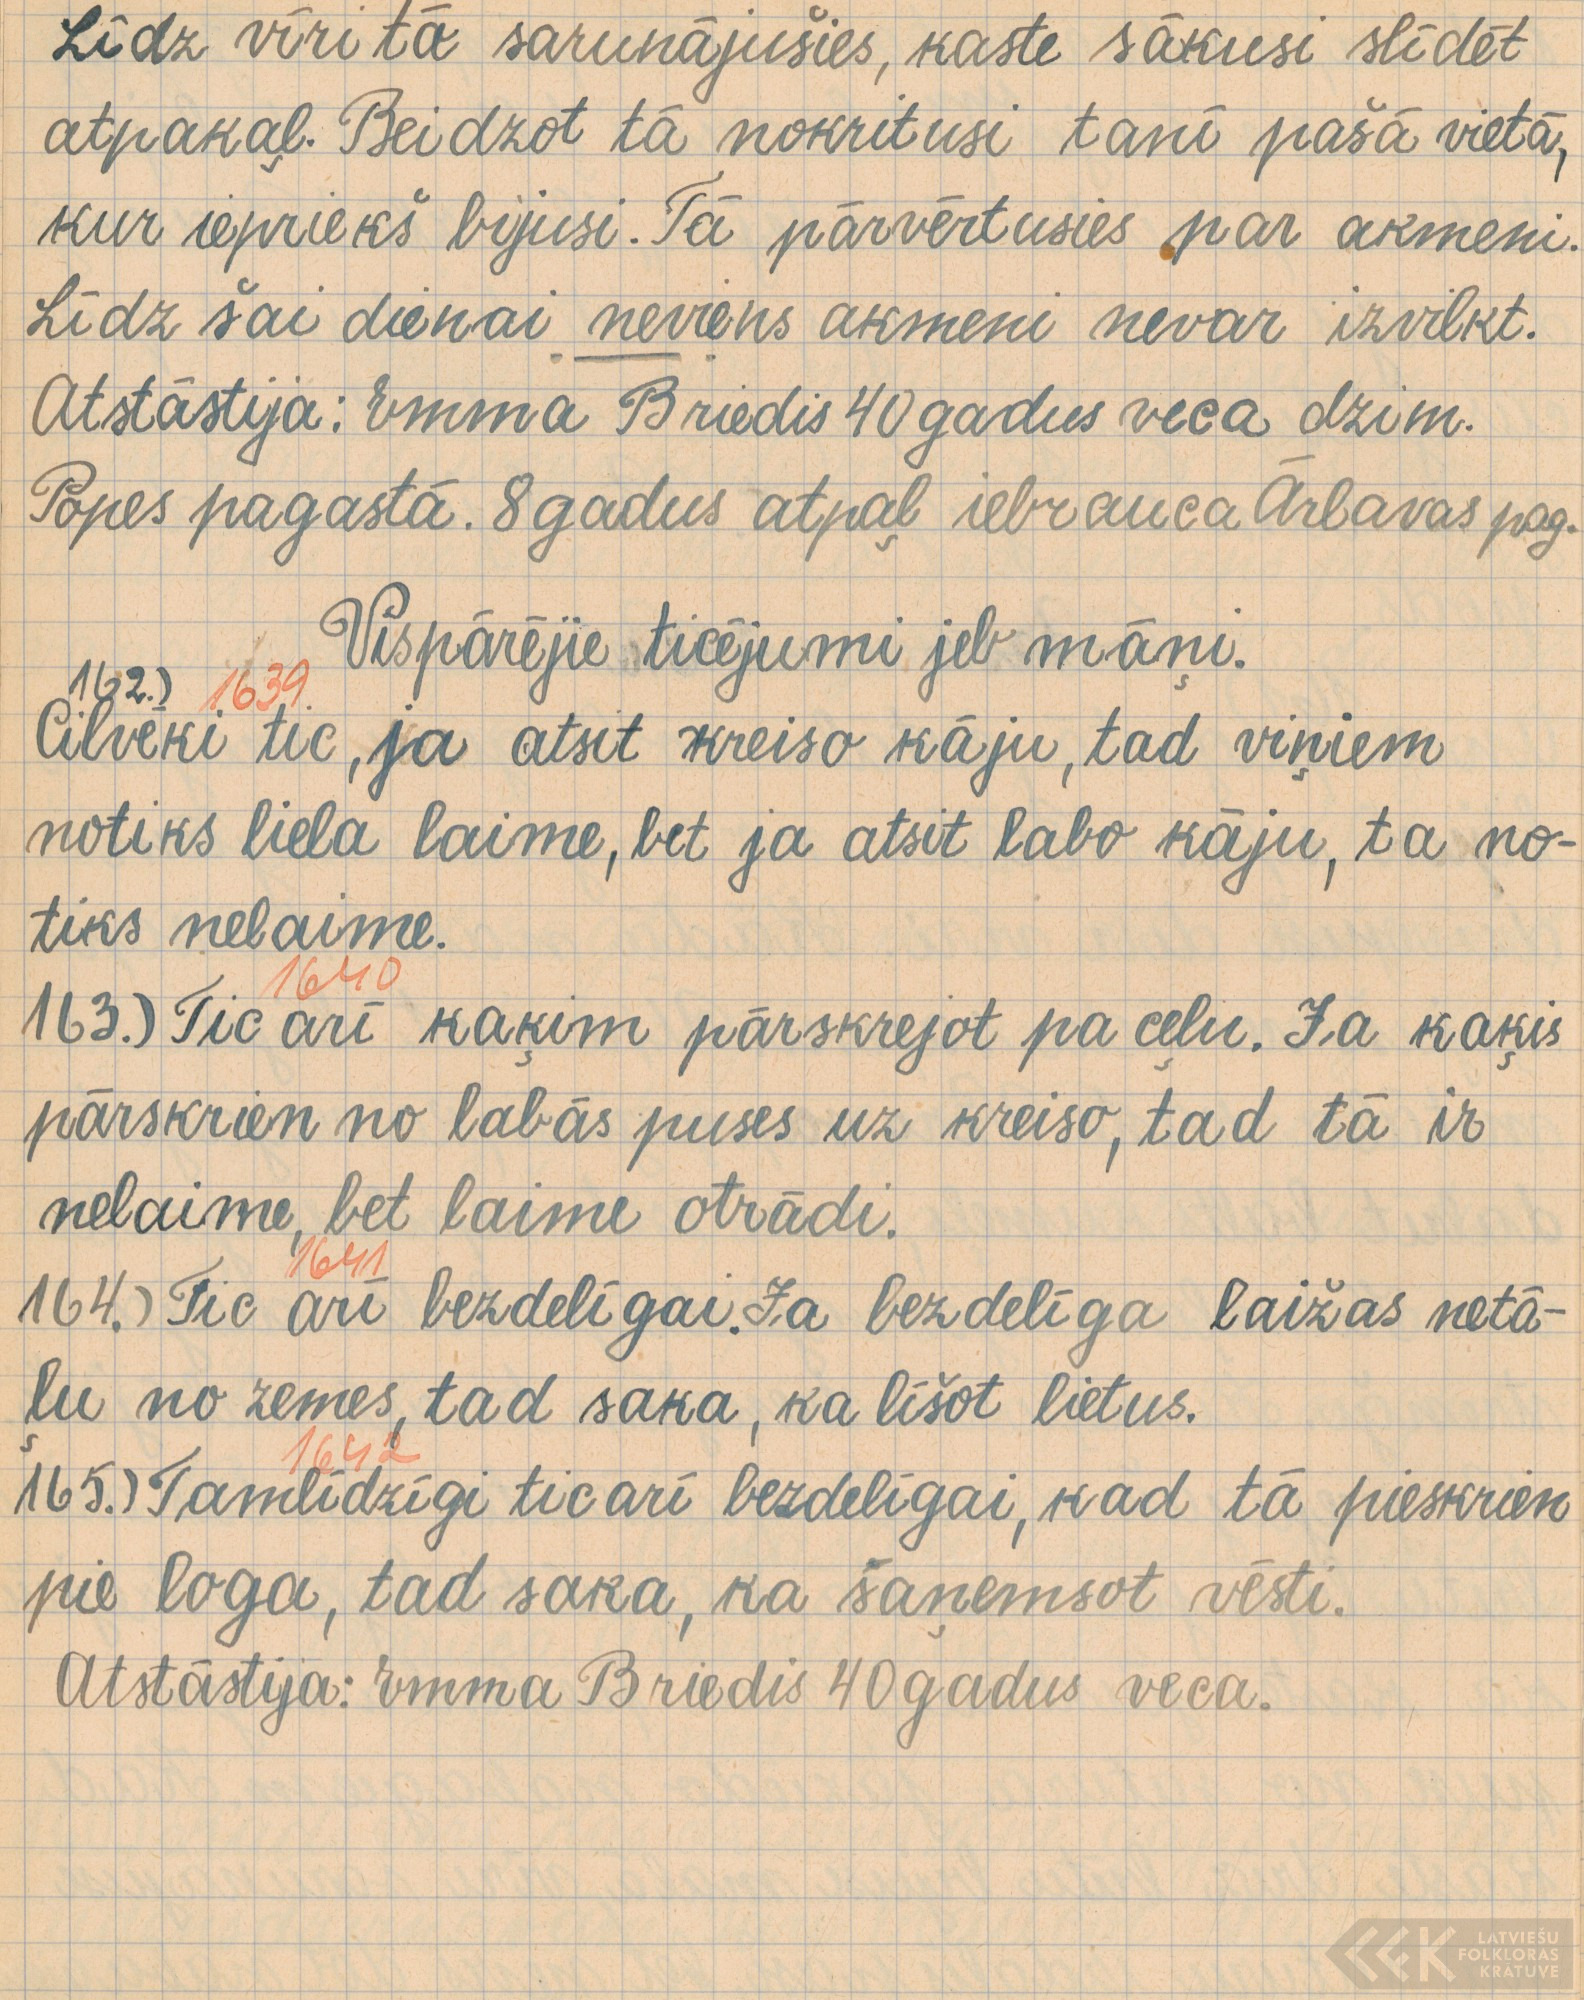 Līdz vīri tā sarunājušies, kaste sākusi slīdēt
atpakaļ. Beidzot tā nokritusi tanī pašā vietā,
kur iepriekš bijusi. Tā pārvērtusies par akmeni.
Līdz šai dienai neviens akmeni nevar izvilkt.
Atstāstīja: Emma Briedis 40 gadus veca dzim.
Popes pagastā. 8 gadus atpaļ iebrauca Ārlavas pag.
Vispārējie ticējumi jeb māņi.
162.) 1639
Cilvēki tic, ja atsit kreiso kāju, tad viņiem
notiks liela laime, bet ja atsit labo kāju, ta no-
tiks nelaime.
1640
163.) Tic arī kaķim pārskrejot pa ceļu. Ja kaķis
pārskrien no labās puses uz kreiso, tad tā ir
nelaime, bet laime otrādi.
1641
164.) Tic arī bezdelīgai. Ja bezdelīga laižas netā-
ļu no zemes, tad saka, ka līšot lietus.
1642
165.) Tamlīdzīgi tic arī bezdelīgai, kad tā pieskrien
pie loga, tad saka, ka šaņemsot vēsti.
Atstāstīja: Emma Briedis 40 gadus veca.
LATVIEŠU
FOLKLORAS
KRĀTUVE